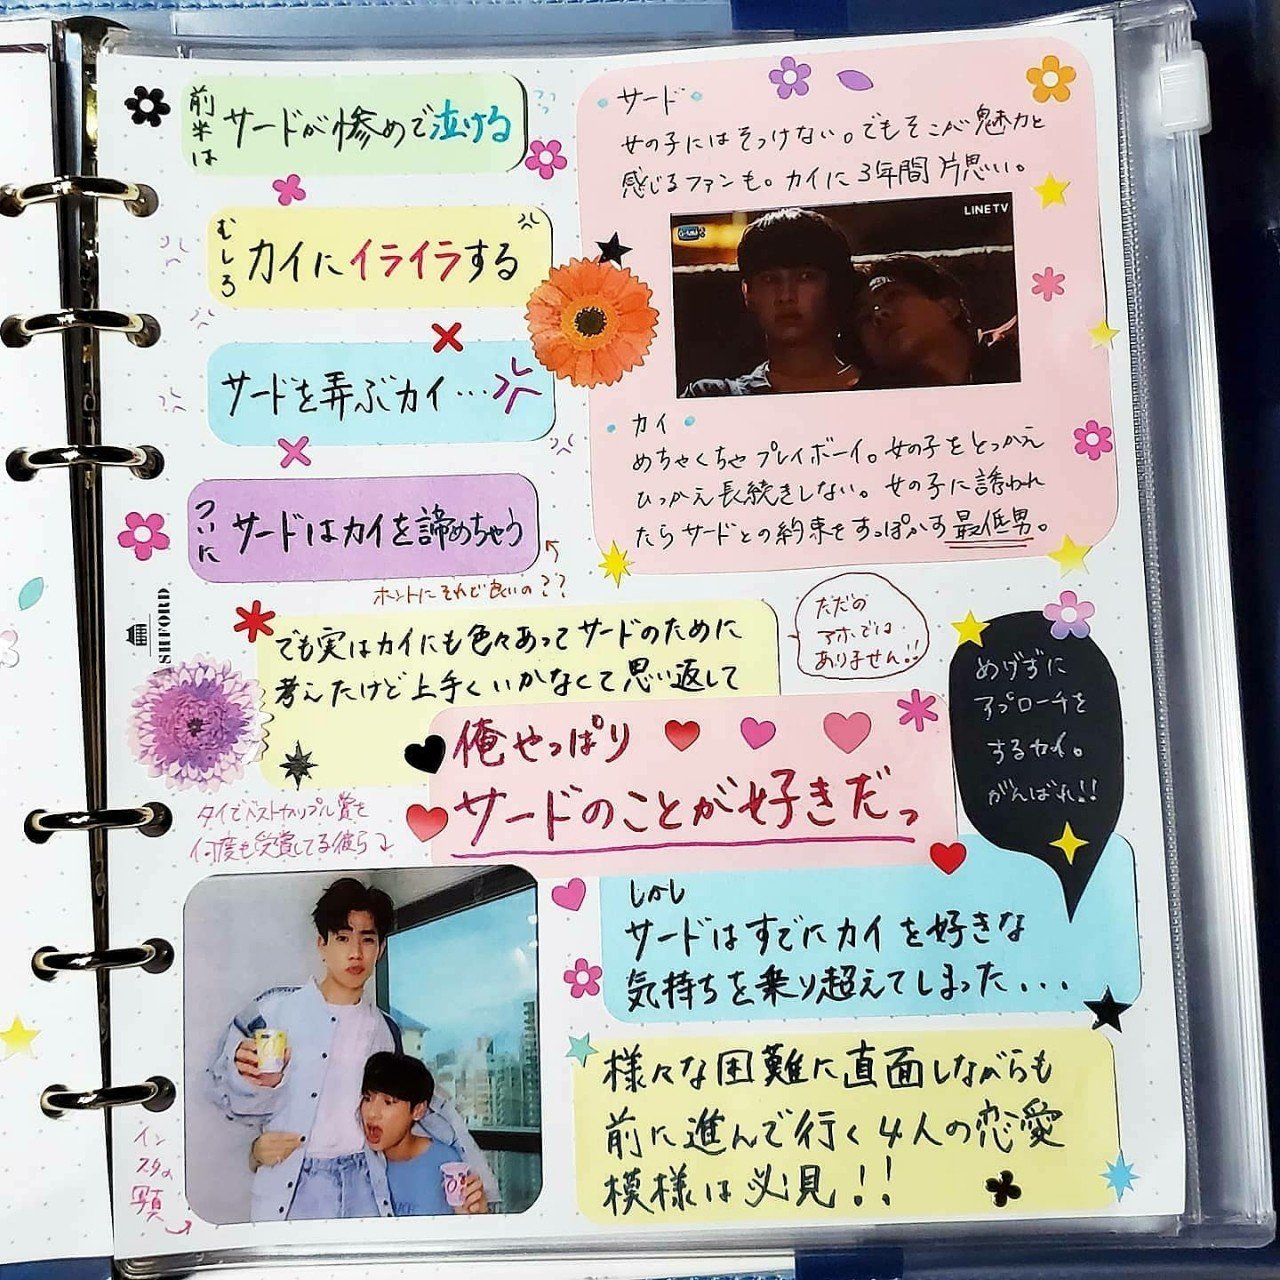 前半は
サードが惨めで泣ける
むしろ
カイにイライラする
サードを弄ぶカイ...
ついに
サードはカイを諦めちゃう
ホントにそれで良いの??
サード
女の子にはそっけない。でもそこが魅力と
感じるファンも。カイに3年間片思い。
LINETV
カイ
めちゃくちゃプレイボーイ。女の子をとっかえ
ひっかえ長続きしない。女の子に誘われ
たらサードとの約束をすっぽかす最低男。
ASHFORD
でも実はカイにも色々あってサードのために
考えたけど上手くいかなくて思い返して
ただの
アホでは
ありません!!
俺やっぱり
サードのことが好きだっ
めげずに
アプローチを
するカイ。
がんばれ!!
タイでベストカップル賞を
何度も受賞してる彼ら
しかし
サードはすでにカイを好きな
気持ちを乗り越えてしまった...
様々な困難に直面しながらも
前に進んで行く4人の恋愛
模様は必見!!
イン
スタの
写真